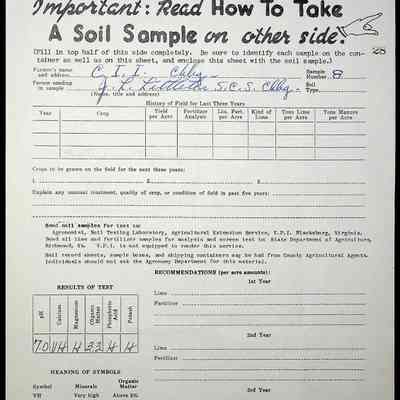 Important: Read How To Take
A Soil Sample on other side!
(Fill in top half of this side completely. Be sure to identify each sample on the con-
tainer as well as on this sheet, and enclose this sheet with the soil sample.)
Farmer's name
and address. C. I. I. Cbbg.
Sample
Number. 8
Person sending
in sample S.C.S. Cbbg.
Soil
Type.
(Name, title and address)
History of Field for Last Three Years
Year Crop Yield per Acre Fertilizer Analysis Lbs. Fert. per Acre Kind of Lime Tons Lime per Acre Tons Manure per Acre
Crops to be grown on the field for the next three years:
1. 2. 3.
Explain any unusual treatment, quality of crop, or condition of field in past five years:
Send soil samples for test to:
Agronomist, Soil Testing Laboratory, Agricultural Extension Service, V.P.I. Blacksburg, Virginia.
Send all lime and fertilizer samples for analysis and screen test to: State Department of Agriculture,
Richmond, VA. V.P.I. is not equipped to render this service.
Soil record sheets, sample boxes, and shipping containers may be had from County Agricultural Agents.
Individuals should not ask the Agronomy Department for this material.
RECOMMENDATIONS (per acre amounts):
1st Year
RESULTS OF TEST
Lime
Fertilizer
pH. Calcium Magnesium Organic Matter Phosphoric Acid Potash
7.0 VH H 3.2 H H
2nd Year
Lime
Fertilizer
HEANING OF SYMBOLS
Symbol Minerals Organic Matter
VH Very high Above 5%
3rd Year
Lime